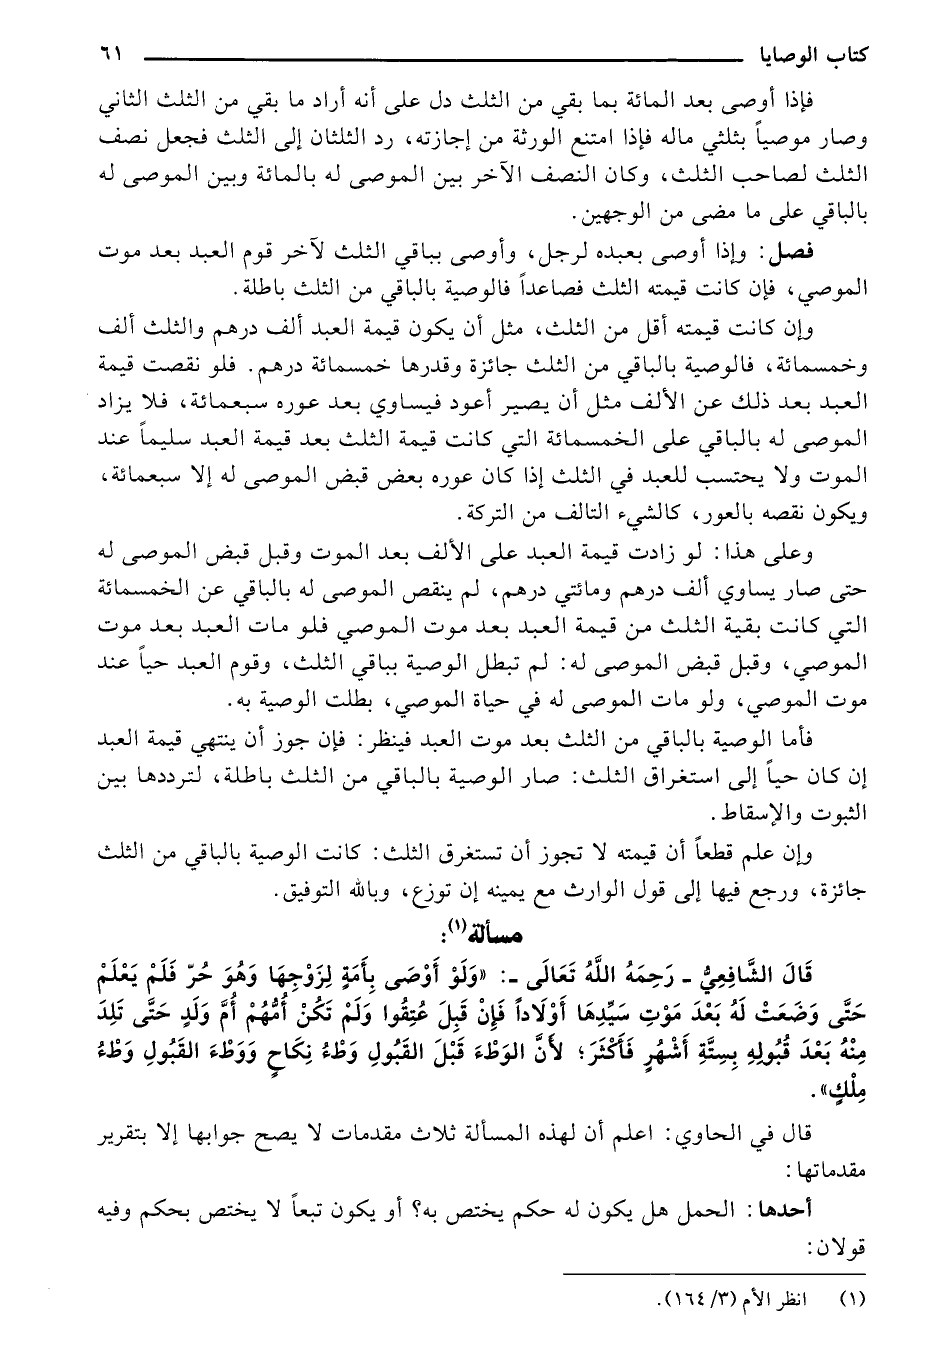 كتاب الوصايا ٦١
فإذا أوصى بعد المائة بما بقي من الثلث دل على أنه أراد ما بقي من الثلث الثاني
وصار موصياً بثلثي ماله فإذا امتنع الورثة من إجازته، رد الثلثان إلى الثلث فجعل نصف
الثلث لصاحب الثلث، وكان النصف الآخر بين الموصى له بالمائة وبين الموصى له
بالباقي على ما مضى من الوجهين.
فصل: وإذا أوصى بعبده لرجل، وأوصى بباقي الثلث لآخر قوم العبد بعد موت
الموصي، فإن كانت قيمته الثلث فصاعداً فالوصية بالباقي من الثلث باطلة.
وإن كانت قيمته أقل من الثلث، مثل أن يكون قيمة العبد ألف درهم والثلث ألف
وخمسمائة، فالوصية بالباقي من الثلث جائزة وقدرها خمسمائة درهم. فلو نقصت قيمة
العبد بعد ذلك عن الألف مثل أن يصير أعود فيساوي بعد عوره سبعمائة، فلا يزاد
الموصى له بالباقي على الخمسمائة التي كانت قيمة الثلث بعد قيمة العبد سليماً عند
الموت ولا يحتسب للعبد في الثلث إذا كان عوره بعض قبض الموصى له إلا سبعمائة،
ويكون نقصه بالعور، كالشيء التالف من التركة.
وعلى هذا: لو زادت قيمة العبد على الألف بعد الموت وقبل قبض الموصى له
حتى صار يساوي ألف درهم ومائتي درهم، لم ينقص الموصى له بالباقي عن الخمسمائة
التي كانت بقية الثلث من قيمة العبد بعد موت الموصي فلو مات العبد بعد موت
الموصي، وقبل قبض الموصى له: لم تبطل الوصية بباقي الثلث، وقوم العبد حياً عند
موت الموصي، ولو مات الموصى له في حياة الموصي، بطلت الوصية به.
فأما الوصية بالباقي من الثلث بعد موت العبد فينظر: فإن جوز أن ينتهي قيمة العبد
إن كان حياً إلى استغراق الثلث: صار الوصية بالباقي من الثلث باطلة، لترددها بين
الثبوت والإسقاط.
وإن علم قطعاً أن قيمته لا تجوز أن تستغرق الثلث: كانت الوصية بالباقي من الثلث
جائزة، ورجع فيها إلى قول الوارث مع يمينه إن توزع، وبالله التوفيق.
مسألة(١):
قَالَ الشَّافِعِيُّ ـ رَحِمَهُ اللَّهُ تَعَالَى ـ: «وَلَوْ أَوْصَى بِأَمَةٍ لِزَوْجِهَا وَهُوَ حُرّ فَلَمْ يَعْلَمْ
حَتَّى وَضَعَتْ لَهُ بَعْدَ مَوْتِ سَيِّدِهَا أَوْلَاداً فَإِنْ قَبِلَ عُتِقُوا وَلَمْ تَكُنْ أُمُّهُمْ أُمَّ وَلَدٍ حَتَّى تَلِدَ
مِنْهُ بَعْدَ قُبُولِهِ بِسِتَّةِ أَشْهُرٍ فَأَكْثَرَ؛ لأَنَّ الوَطْءَ قَبْلَ القَبُولِ وَطْءُ نِكَاحٍ وَوَطْءَ القَبُولِ وَطْءُ
مِلْكٍ».
قال في الحاوي: اعلم أن لهذه المسألة ثلاث مقدمات لا يصح جوابها إلا بتقرير
مقدماتها:
أحدها: الحمل هل يكون له حكم يختص به؟ أو يكون تبعاً لا يختص بحكم وفيه
قولان:
(١) انظر الأم (٣/ ١٦٤).